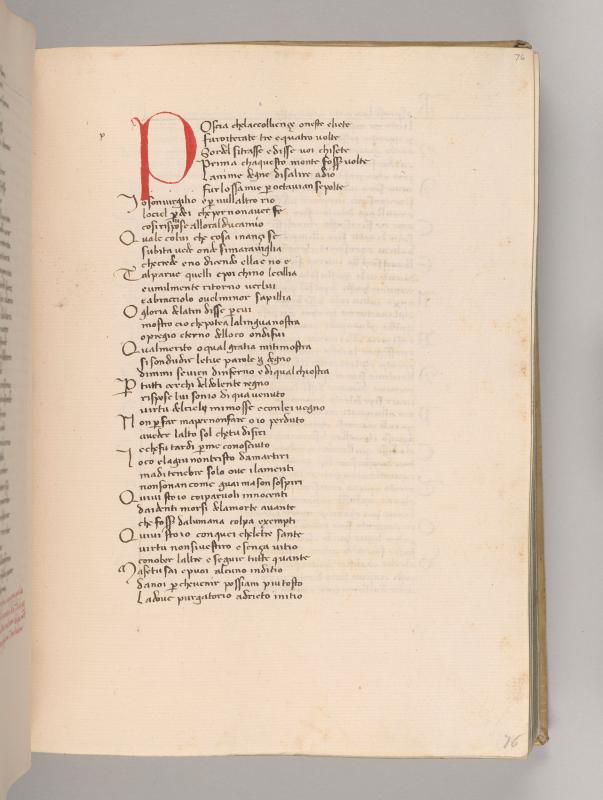 76
p
POscia chelaccollienze oneste eliete
Furo iterate tre equatro volte
Sordel sitrasse edisse voi chisete
Prima chaquesto monte fosser volte
Lanime degne disalire adio
Fur lossa mie per octavian sepolte
Io son virgilio e per null altro rio
lo ciel perdei che per non aver fe
cosi rispose allora il duca mio
Quale colui che cosa inanzi se
subita vede onde si maraviglia
che crede e no dicendo ella e no e
Tal parve quelli e poi chino le cillia
e umilmente ritorno ver lui
e abracciolo ovel minor sapillia
O gloria de latin disse per cui
mostro cio che potea la lingua nostra
o pregio eterno del loco ondi fui
Qual merito o qual gratia mi ti mostra
si son dudir le tue parole degno
dimmi se vien dinferno e di qual chiostra
P tutti cerchi del dolente regno
rispose lui sonio di qua venuto
virtu del cielo mi mosse e con lei vegno
Non per far ma per non fare o io perduto
a veder lalto sol che tu disiri
e che fu tardi per me conosciuto
Loco e la giu non tristo da martiri
ma di tenebre solo ove i lamenti
non sonan come guai ma son sospiri
Quivi sto io coi parvoli innocenti
da i denti morsi de la morte avante
che fosser da lumana colpa exempti
Quivi sto io con quei che le tre sante
virtu non si vestiro e senza vitio
conober laltre e seguir tutte quante
Ma se tu sai e puoi alcuno inditio
da noi perche venir possiam piu tosto
La dove purgatorio a dricto initio
76